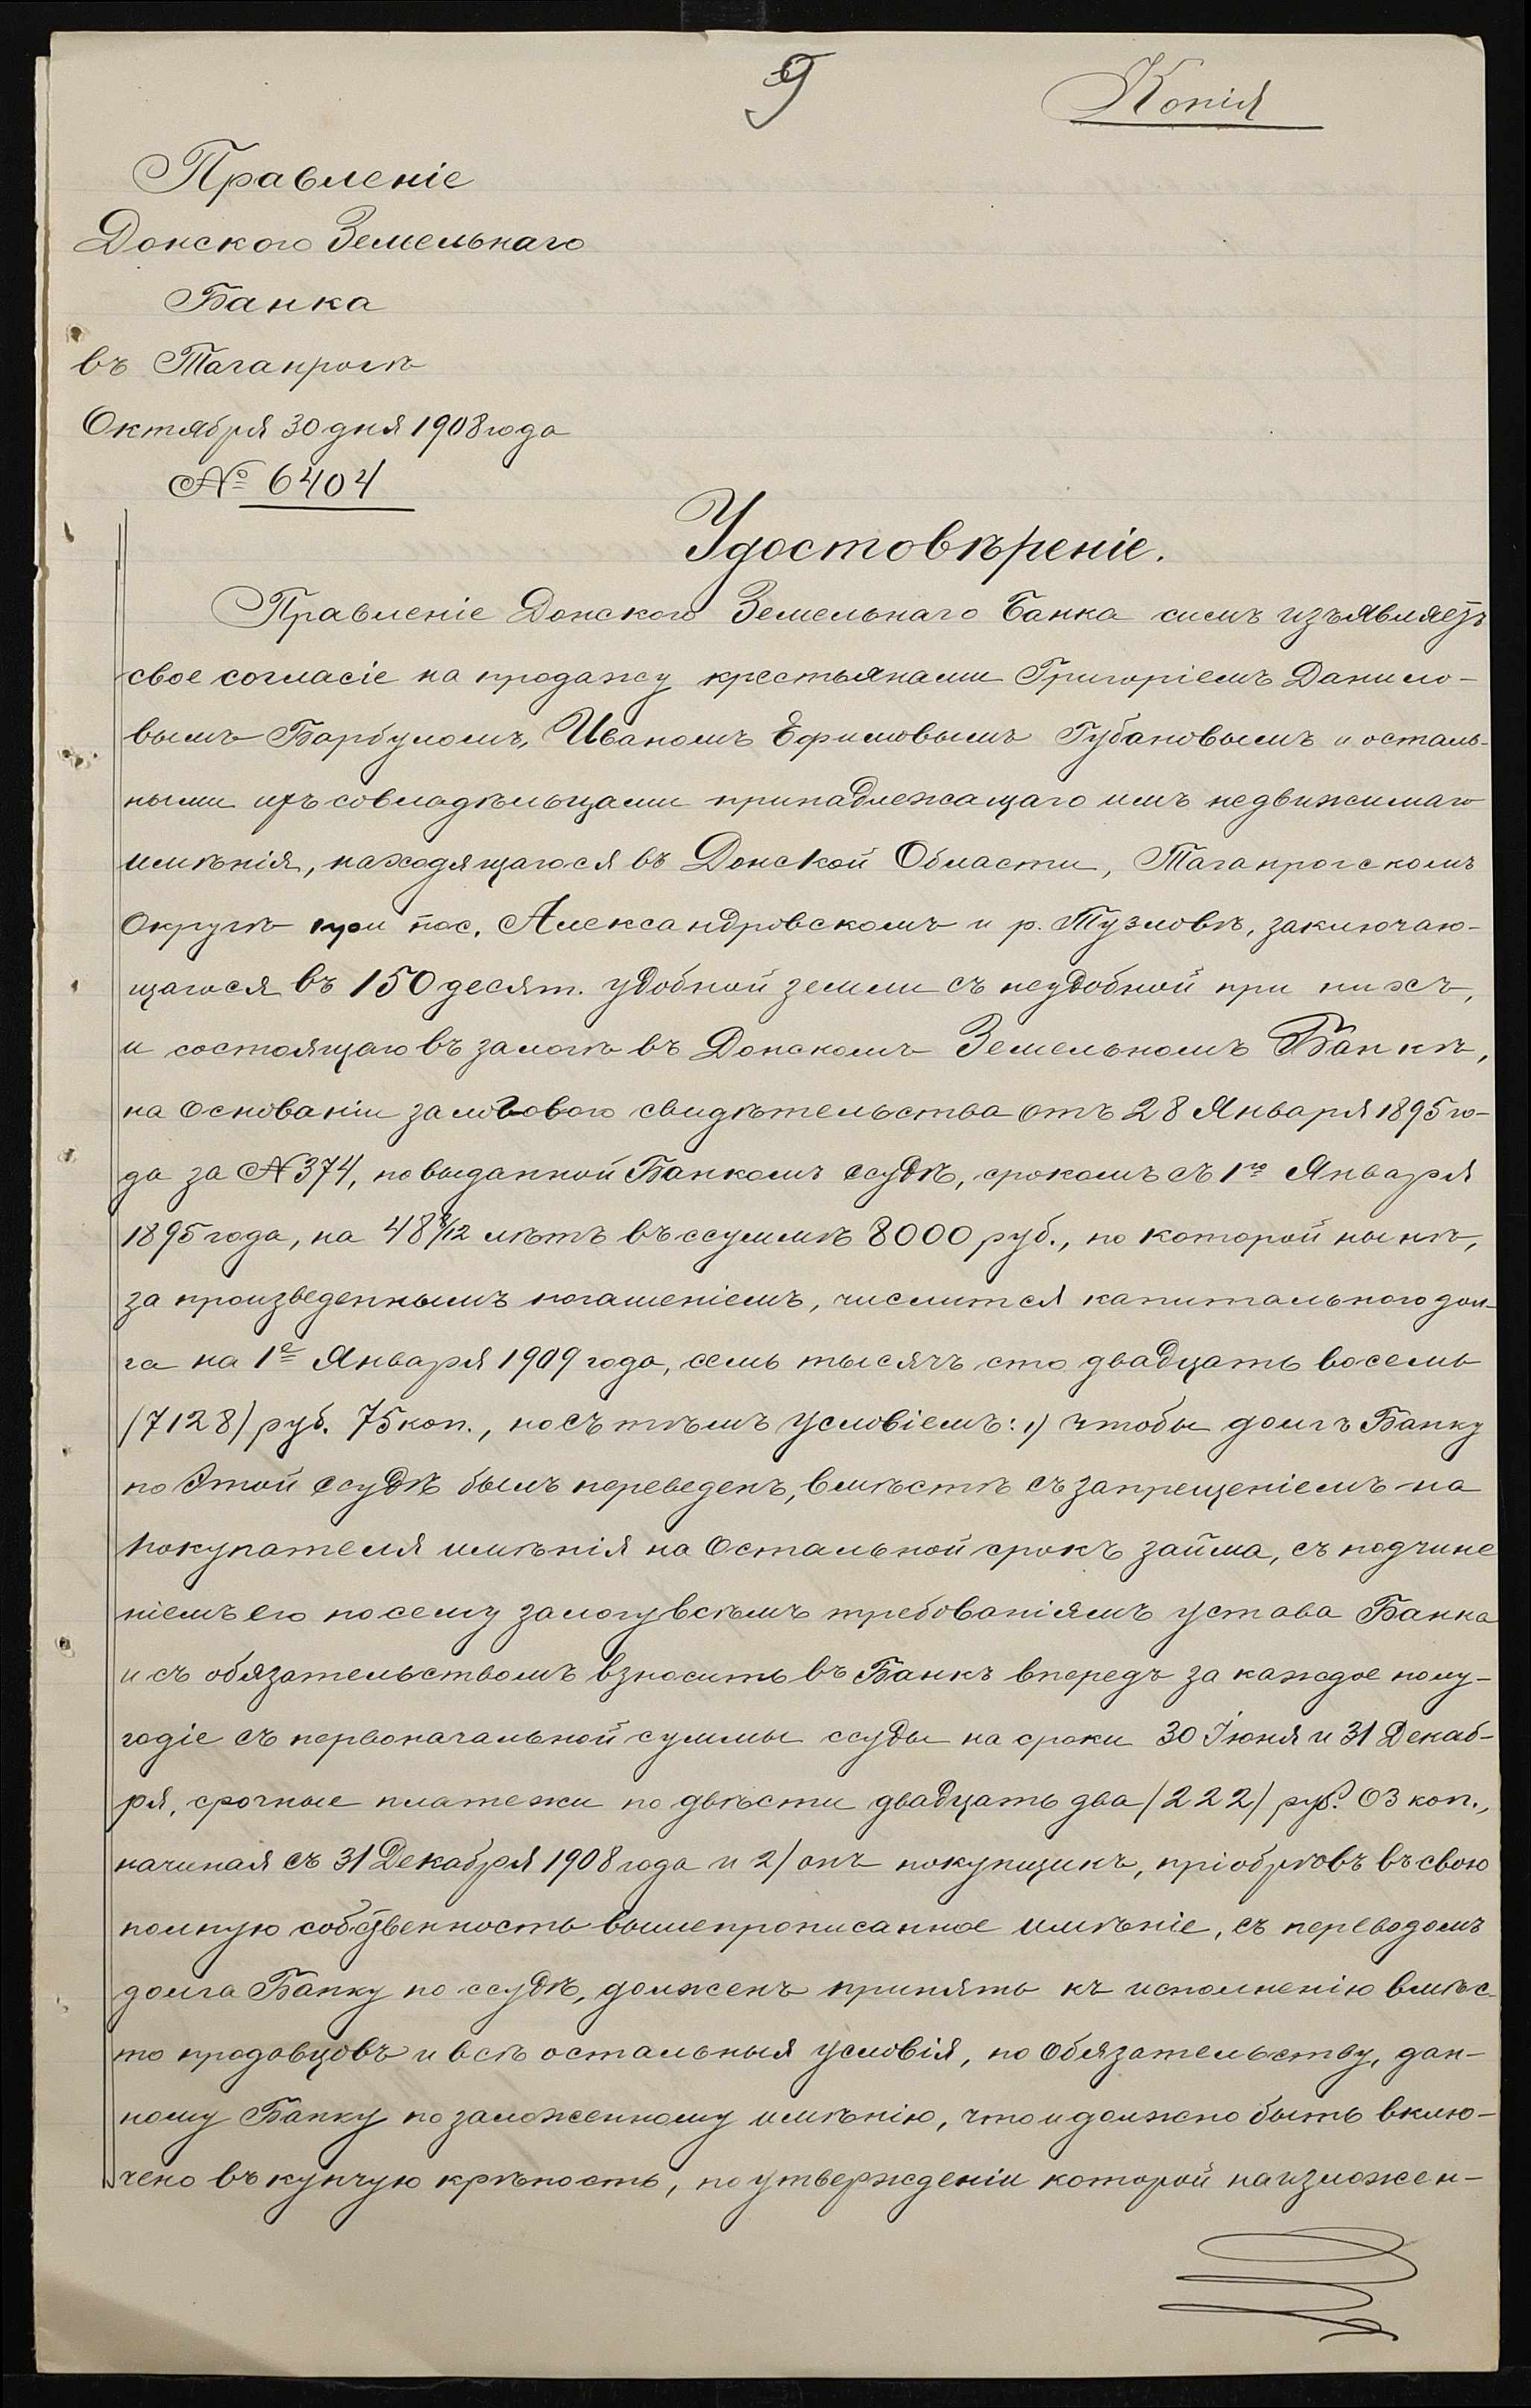 9
Копія
Правленіе
Донского Земельнаго
Банка
въ Таганрогѣ
Октября 30 дня 1908 года
№ 6404
Удостовѣреніе.
Правленіе Донского Земельнаго Банка симъ изъявляетъ
свое согласіе на продажу крестьянами Григоріемъ Данило-
вымъ Барбуломъ, Иваномъ Ефимовымъ Губановымъ и осталь-
ными ихъ совладѣльцами принадлежащаго имъ недвижимаго
имѣнія, находящагося въ Донской Области, Таганрогскомъ
Округѣ при пос. Александровскомъ и р. Тузловѣ, заключаю-
щагося въ 150 десят. удобной земли съ неудобной при нихъ,
и состоящаго въ залогѣ въ Донскомъ Земельномъ Банкѣ,
на основаніи залогового свидѣтельства отъ 28 Января 1895 го-
да за № 374, по выданной Банкомъ ссудѣ, срокомъ съ 1го Января
1895 года, на 48 8/12 лѣтъ въ ссуммѣ 8000 руб., по которой нынѣ,
за произведеннымъ погашеніемъ, числится капитального дол-
га на 1е Января 1909 года, семь тысячъ сто двадцать восемь
/7128/ руб. 75 коп., но съ тѣмъ условіемъ: 1/ чтобы долгъ Банку
по этой ссудѣ былъ переведенъ, вмѣстѣ съ запрещеніемъ на
покупателя имѣнія на остальной срокъ займа, съ подчине
ніемъ его по сему залогу всѣмъ требованіямъ устава Банка
и съ обязательствомъ взносить въ Банкъ впередъ за каждое полу-
годіе съ первоначальной суммы ссуды на сроки 30 Іюня и 31 Декаб-
ря, срочные платежи по двѣсти двадцать два /222/ руб. 03 коп.,
начиная съ 31 Декабря 1908 года и 2/ онъ покупщикъ, пріобрѣвъ въ свою
полную собственность вышепрописанное имѣніе, съ переводомъ
долга Банку по ссудѣ, долженъ принять къ исполненію вмѣс-
то продавцовъ и всѣ остальныя условія, по обязательству, дан-
ному Банку по заложенному имѣнію, что и должно быть вклю-
чено въ купчую крѣпость, по утвержденіи которой на изложен-